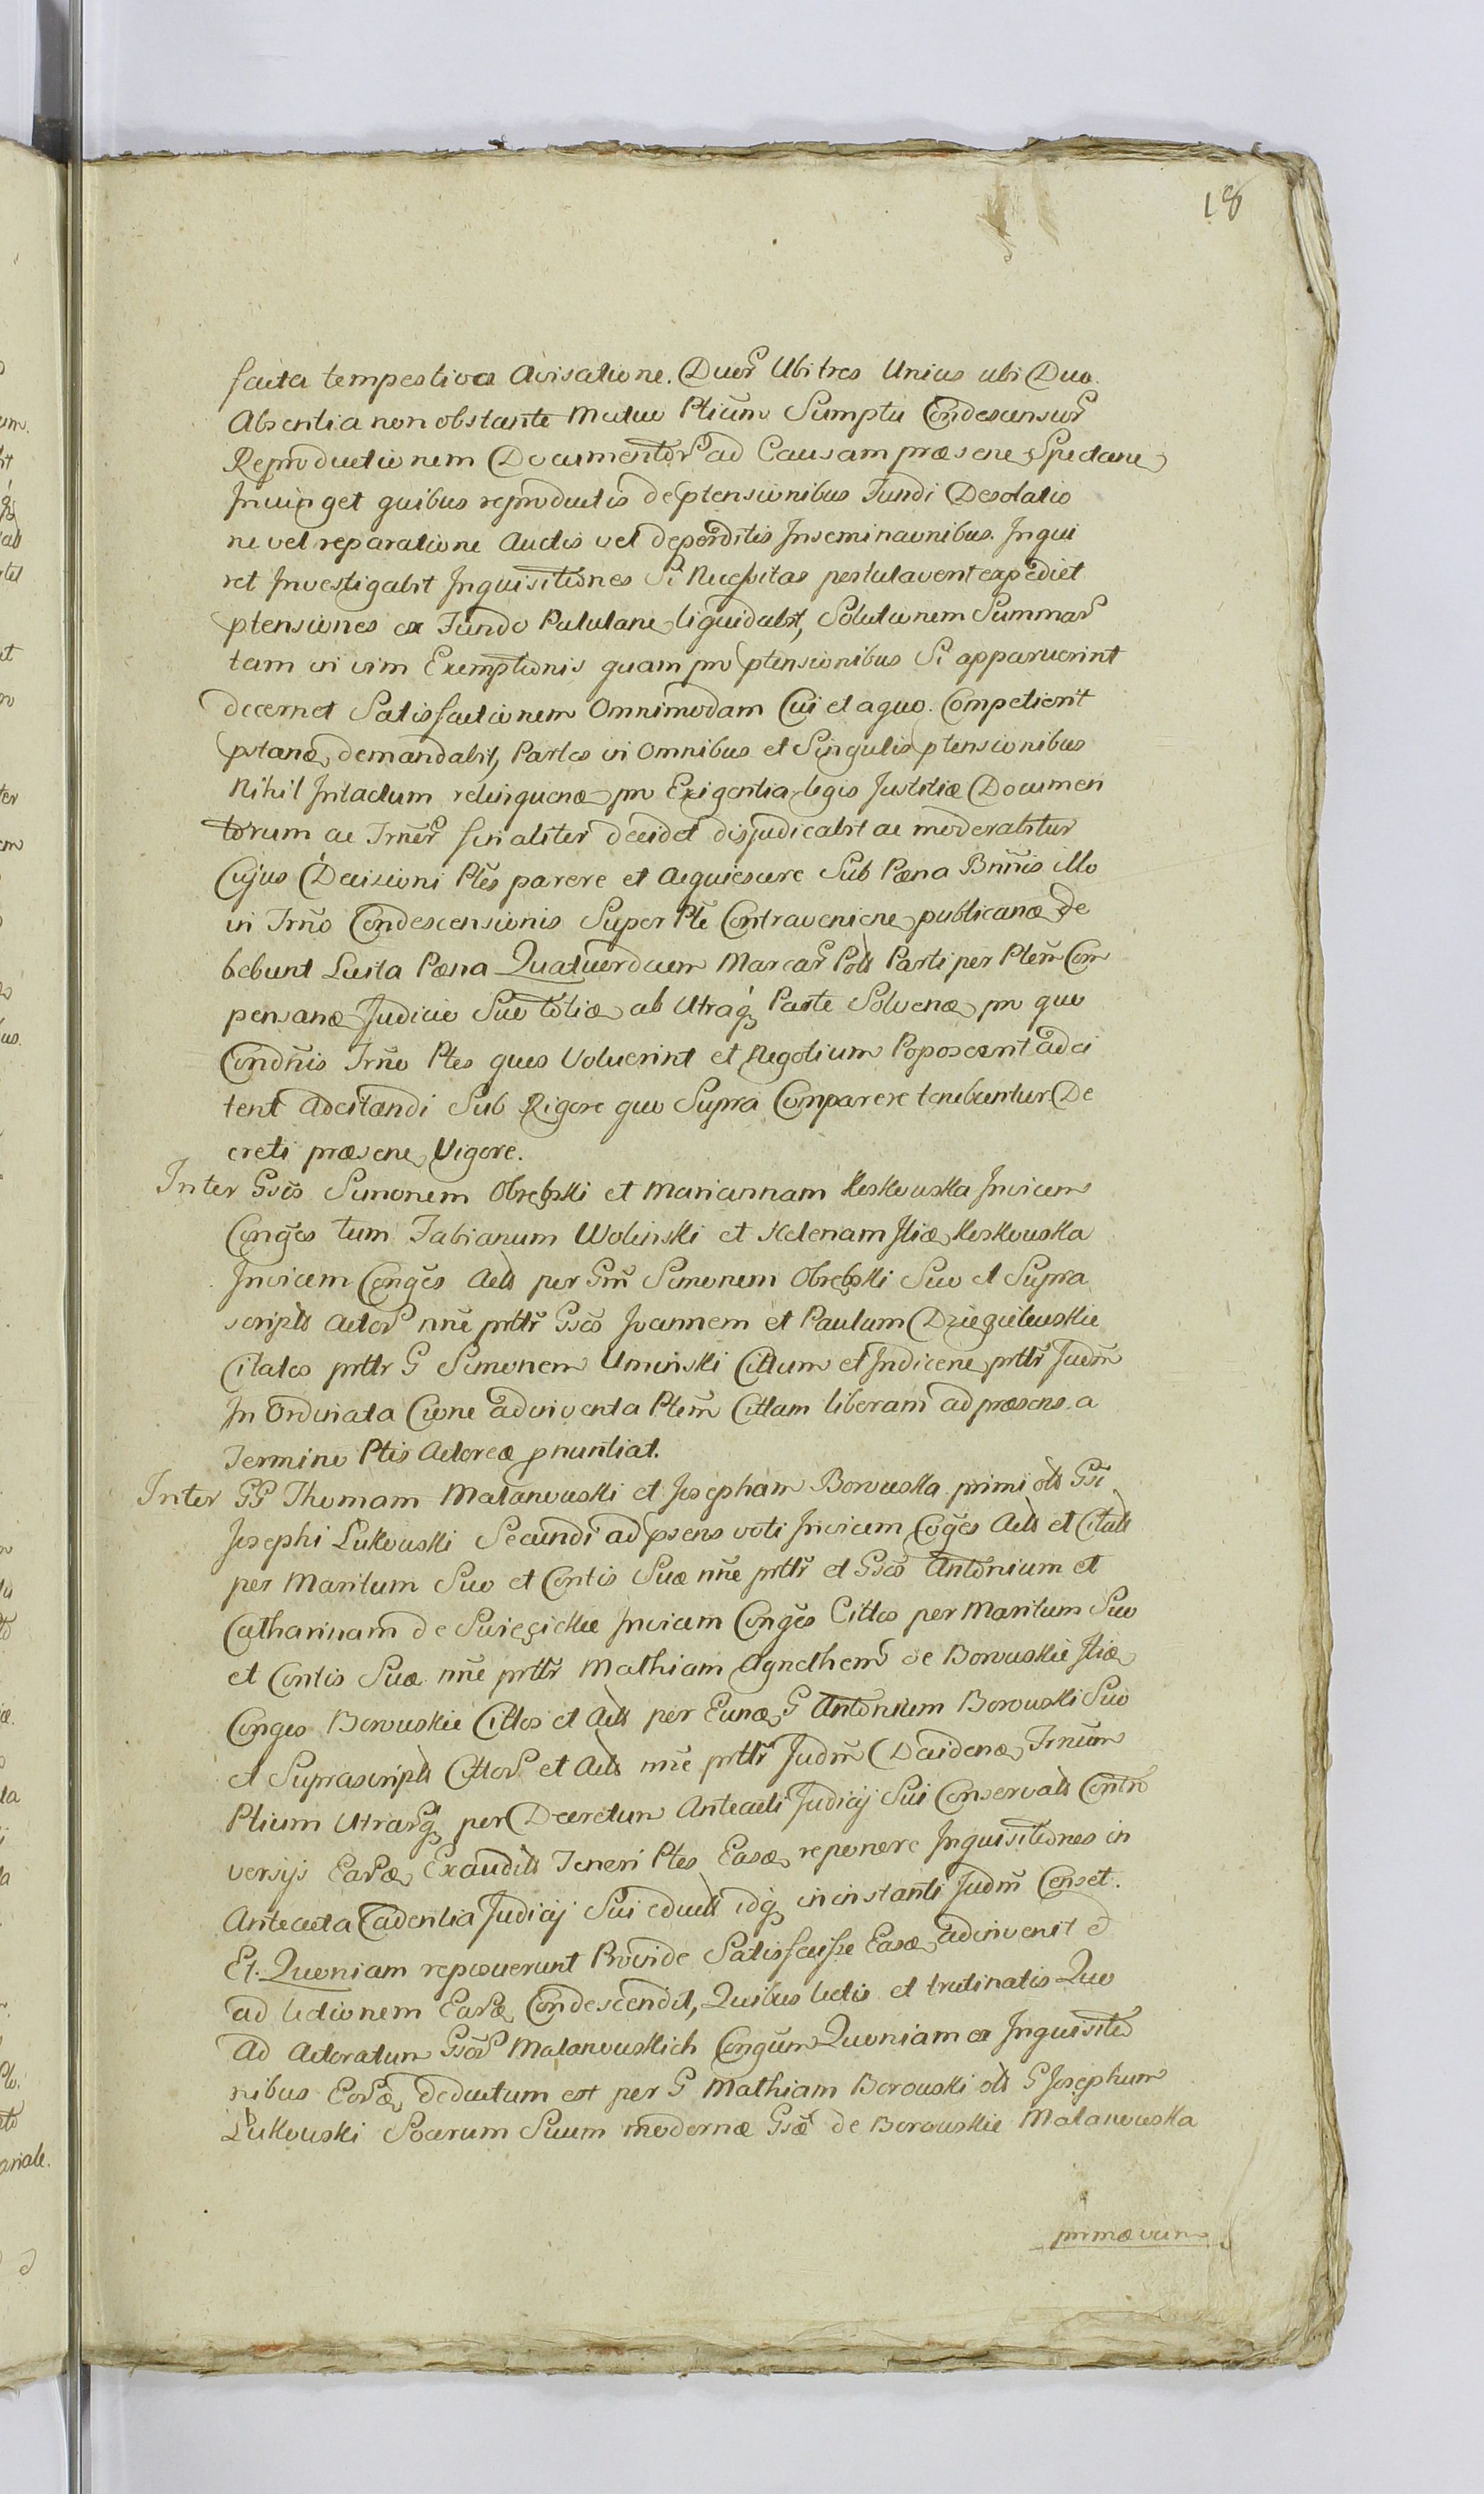 18
facta tempestiva Avisatione. Duor̃ Ubi tres Unius ubi Duo.
Absentia non obstante Mutuo Ptium̃ Sumptu Condescensur̃
Reproductionem Documentor̃ ad Causam præsen Spectan
Injunget quibus reproductis de ptensionibus Fundi Desolatio
ne vel reparatione Auctis vel deperditis Inseminaonibus. Inqui
ret Investigabit Inquisitiones Si Necessitas postulaverit expediet
ptensiones ex Fundo Palulan liquidabit, Solutionem Summar̃
tam in vim Exemptionis quam pro ptensionibus Si apparuerint
decernet Satisfactionem Omnimodam Cui et a quo. Competierit
pstan demandabit, Partes in Omnibus et Singulis ptensionibus
Nihil Intactum relinquen pro Exigentia legis Justitiæ Documen
torum ac Jrner̃ finaliter decidet disjudicabit ac moderabitur
Cujus Decisioni Ptes parere et Acquiescere Sub Pæna Bnnis illo
in Trno Condescensionis Super Pte Contravenien publican de
bebunt Luita Pæna Quatuordecim Marcar̃ Pols Parti per Ptem̃ Com
pensan Judicio Suo tolia ab Utraq̃ Parte Solven pro quo
Condñis Trno Ptes quos Voluerint et Negotium Poposcerit adci
tent Adcitandi Sub Rigore quo Supra Comparere tenebuntur De
creti præsen Vigore.
Inter Gsos Simonem Obrębski et Mariannam Koskowska Invicem
Conges tum Fabianum Wolinski et Helenam Itid Koskowska
Invicem Conges Acts per Gm̃ Simonem Obrębski Suo et Supra
scripts Actor̃ nne prttr̃ Gsos Joannem et Paulum Dzięgielewskie
Citatos prttr G Simonem Uminski Cittum et Indicen prttr̃ Judm̃
In Ordinata Cione adinventa Ptem̃ Cittam liberam ad præsens a
Termino Ptis Actoreæ pnuntiat.
Inter GG Thomam Malanowski et Josepham Borowska primi ols Gsi
Josephi Lukowski Secundi ad psens voti Invicem Coges Acts et Citats
per Maritum Suo et Contis Suæ nne prttr̃ et Gsos Antonium et
Catharinam de Swięcickie Invicem Conges Cittos per Maritum Suo
et Contis Suæ nne prttr̃ Mathiam Agnethem de Borowskie Itid
Conges Borowskie Cittos et Acts per Eund G Antonium Borowski Suo
et Suprascripts Cittor̃ et Acts nne prttr̃ Judm̃ Deciden Trnum̃
Ptium Utrarq̃ per Decretum Anteacti Judicij Sui Conservats Contro
versijs Ear̃d Exaudits Teneri Ptes Easd reponere Inquisitiones in
Anteacta Cadentia Judicij Sui educts idq̃ in instanti Judm̃ Censet.
Et Quoniam reposuerunt Proinde Satisfecisse Easd adinvenit et
ad lectionem Ear̃d Condescendit, Quibus lectis et trutinatis Quo
Ad Actoratum Gsor̃ Malanowskich Congum̃ Quoniam ex Inquisitio
nibus Eor̃d deductum est per G Mathiam Borowski ols G Josephum
Lukowski Socerum Suum modernæ Gsæ de Borowskie Malanowska
primævum